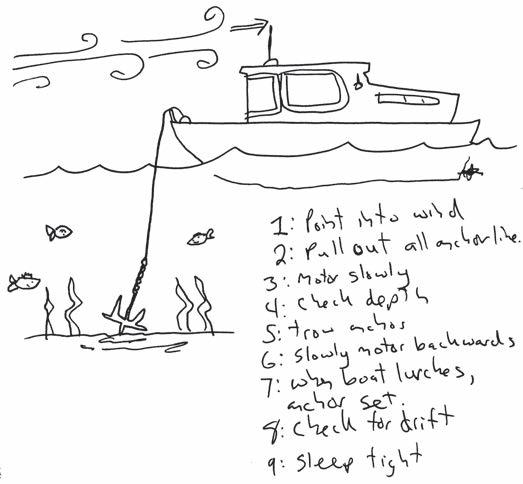 1: Point into wind
2: Pull out all anchorline.
3: Motor slowly
4: Check depth
5: trow anchor
6: slowly motor backwards
7: when boat lurches,
anchor set.
8: Check for drift
9: sleep tight